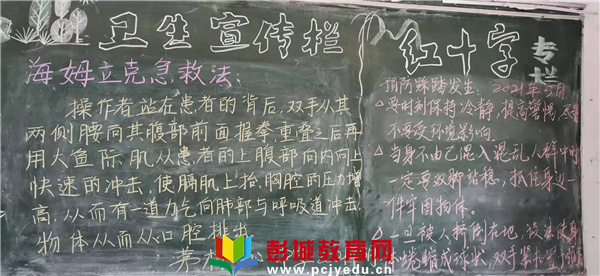 卫生宣传栏
海姆立克急救法:
操作者站在患者的背后,双手从其
两侧腰向其腹部前面握拳重叠之后再
用大鱼际肌从患者的上腹部向内向上
快速的冲击,使膈肌上抬,胸腔的压力增
高,从而有一道力气向肺部与呼吸道冲击,
物体从而从口腔排出
红十字
专栏
预防踩踏发生: 2021年5月
△要时刻保持冷静,提高警惕,
不要受环境影响。
△当身不由己混入混乱人群中时
一定要双脚站稳,抓住身边一
件牢固物体。
△一旦被人挤倒在地,设法使身
体蜷缩成球状,双手紧扣置
彭城教育网
www.pcjyedu.cn